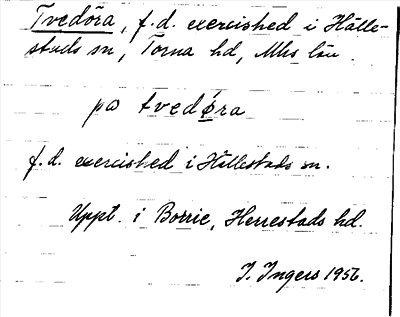 Tvedöra, f.d. exercished i Hälle-
stads sn, Torna hd, Mhs län.
pa tvedøra
f.d. exercished i Hällestads sn.
Uppt. i Borrie, Herrestads hd.
I. Ingers 1956.